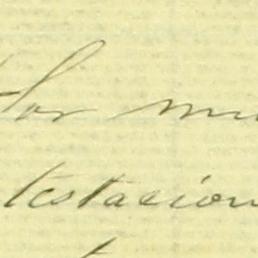 Por mu
testacion